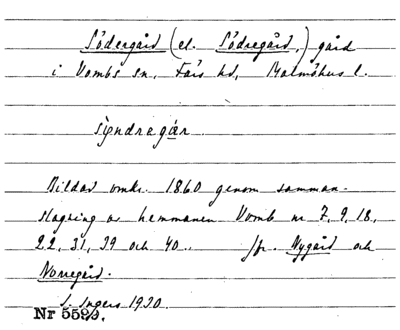 Södergård (el. Södregård,) gård
i Vombs sn, Färs hd, Malmöhus l.
syndregár.
Bildad omkr. 1860 genom samman-
slagning av hemmanen Vomb nr 7, 9, 18,
22, 31, 39 och 40. Jfr. Nygård och
Norregård.
I. Ingers 1930.
Nr 5599.